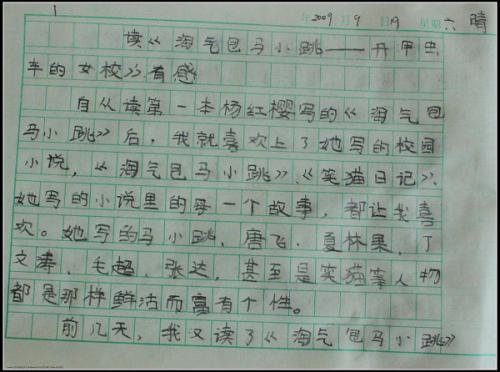 1
年2009 月9 日19 星期六 晴
读《淘气包马小跳——开甲虫
车的女校》有感
自从读第一本杨红樱写的《淘气包
马小跳》后，我就喜欢上了她写的校园
小说，《淘气包马小跳》、《笑猫日记》、
她写的小说里的每一个故事，都让我喜
欢。她写的马小跳、唐飞、夏林果、丁
文涛、毛超、张达，甚至是笑猫等人物
都是那样鲜活而富有个性。
前几天，我又读了《淘气包马小跳》